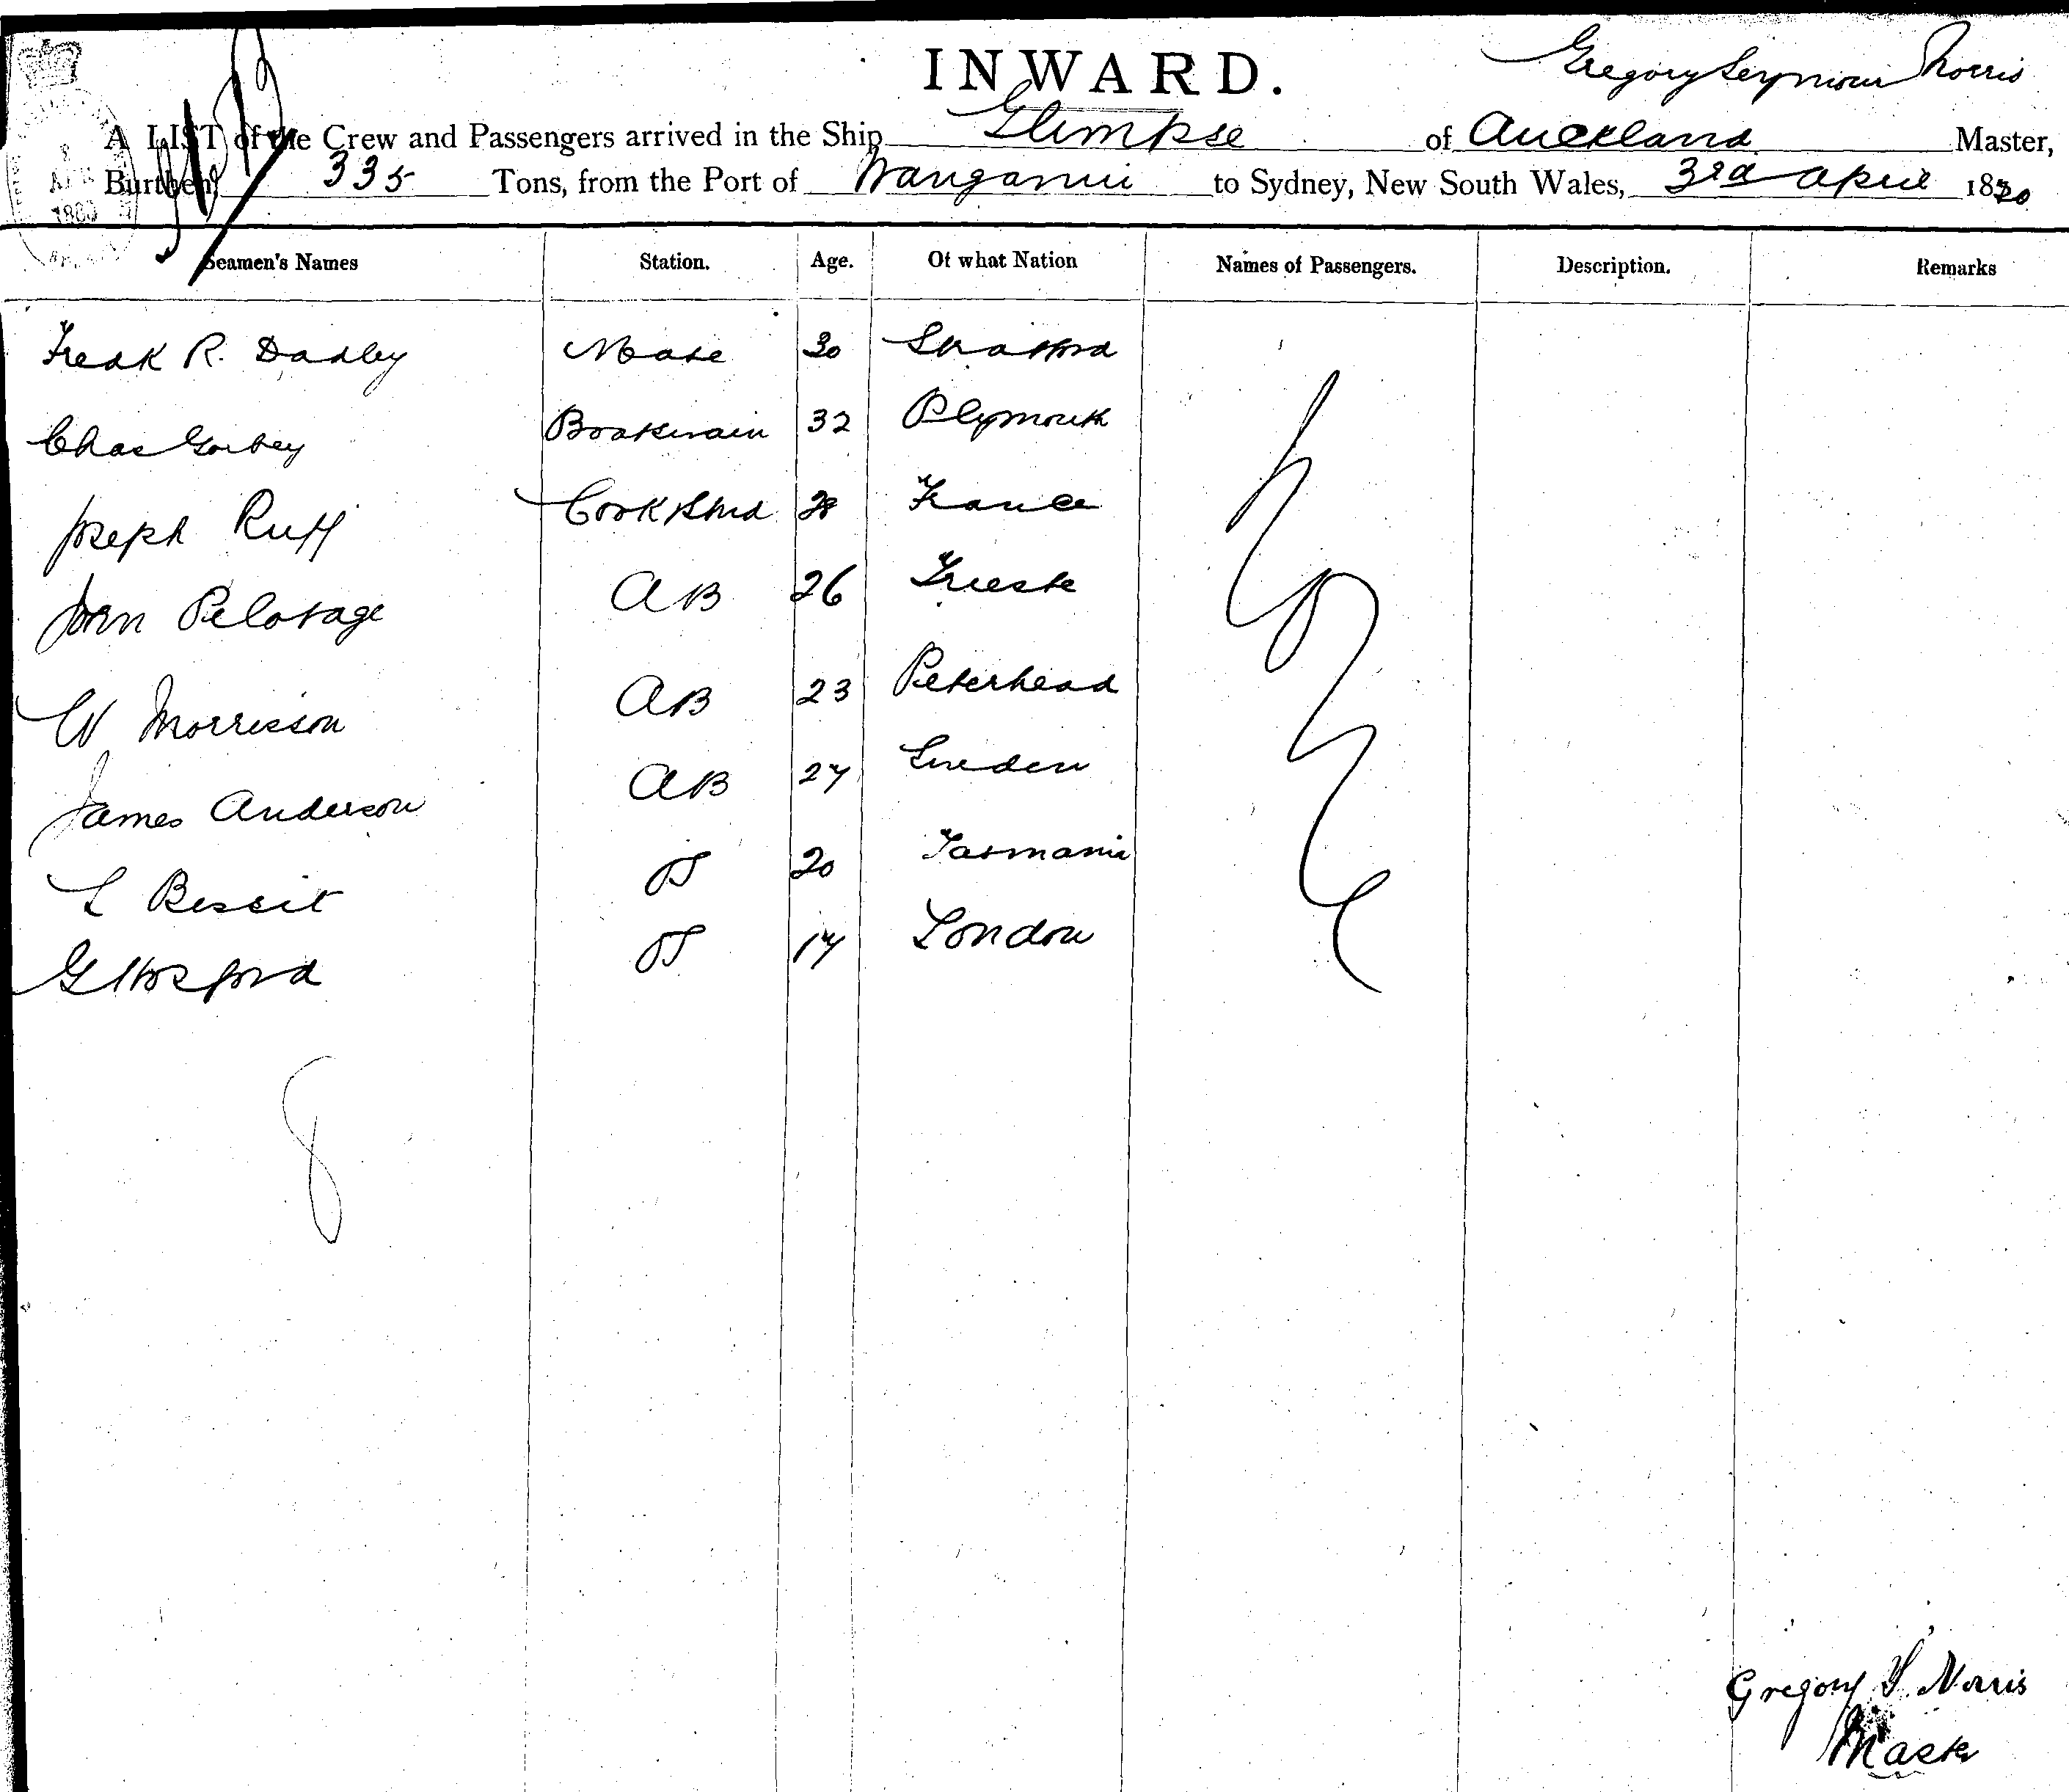 INWARD.
Gregory Seymour Norris
A LIST of the Crew and Passengers arrived in the Ship Glimpse of Auckland Master,
Burthen, 335 Tons, from the Port of Wanganui to Sydney, New South Wales, 3rd April 1880
Seamen's Names Station. Age. Of what Nation Names of Passengers. Description. Remarks
Fredk R. Dadley Mate 30 Stratford
Chas Gorbey Boatswain 32 Plymouth
Joseph Ruff Cook & Stwd 28 France
John Pelotage AB 26 Trieste
W Morrison AB 23 Peterhead
James Anderson AB 27 Sweden
L Bessit OS 20 Tasmania
G Horsford OS 17 London
8
Gregory S. Norris
Master